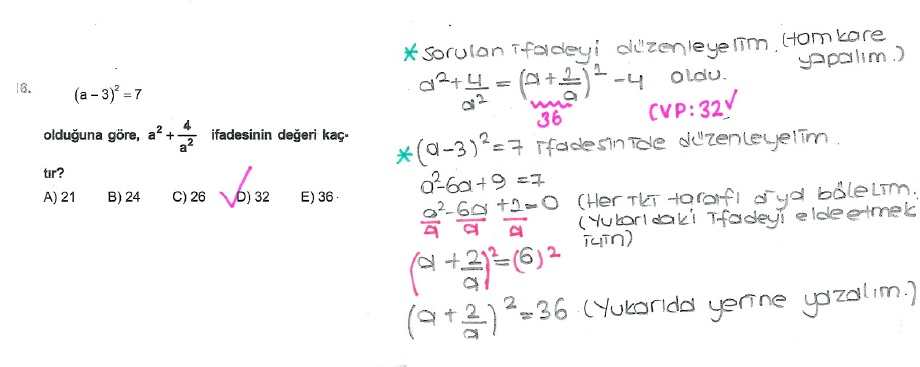 16.
(a – 3)² = 7
olduğuna göre, a² + 4/a² ifadesinin değeri kaç-
tır?
A) 21 B) 24 C) 26 D) 32 E) 36
* Sorulan ifadeyi düzenleyelim. (tamkare
yapalım.)
a² + 4/a² = (a + 2/a)² - 4 oldu.
36 CVP: 32 ✓
* (a-3)² = 7 ifadesinide düzenleyelim.
a² - 6a + 9 = 7
a²/a - 6a/a + 2/a = 0 (Her iki tarafı a'ya bölelim.
(Yukarıdaki ifadeyi elde etmek
için)
(a + 2/a)² = (6)²
(a + 2/a)² = 36 (Yukarıda yerine yazalım.)